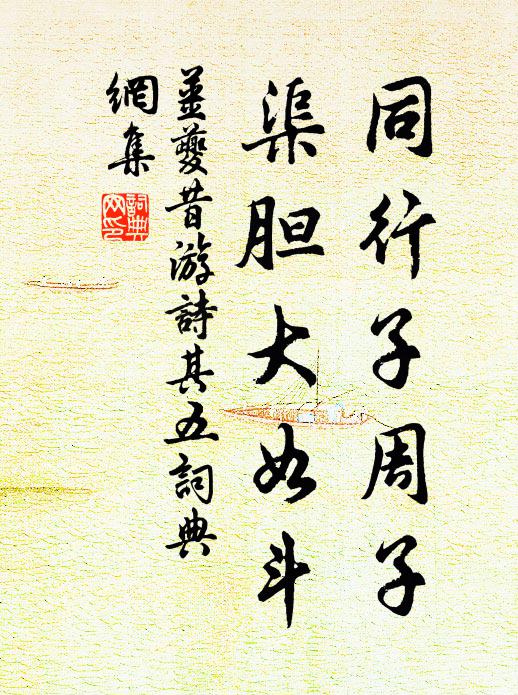 同行子周子
渠胆大如斗
姜夔昔游詩其五詞典
網集
詞典
网印